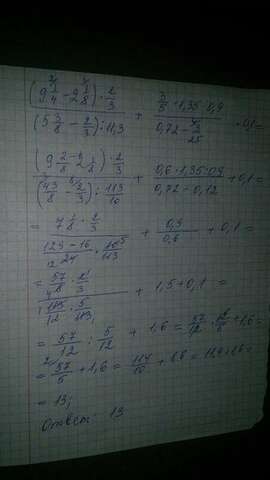 (9 1/4 - 2 1/8) · 2/3 / (5 3/8 - 2/3) : 11,3 + 3/5 · 1,35 : 0,9 / 0,72 - 3/25 + 0,1 =
(9 2/8 - 2 1/8) · 2/3 / (43/8 - 2/3) : 113/10 + 0,6 · 1,35 : 0,9 / 0,72 - 0,12 + 0,1 =
= 7 1/8 · 2/3 / 129 - 16/24 · 10/113 + 0,9/0,6 + 0,1 =
= 57/8 · 2/3 / 113/12 · 5/113 + 1,5 + 0,1 =
= 57/12 : 5/12 + 1,6 = 57/12 · 12/5 + 1,6 =
= 57/5 + 1,6 = 114/10 + 1,6 = 11,4 + 1,6 =
= 13;
Ответ: 13